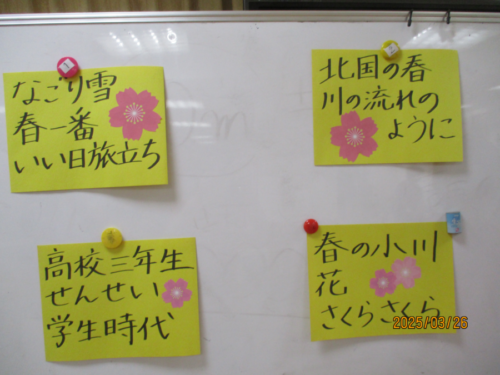 なごり雪
春一番
いい日旅立ち
北国の春
川の流れの
ように
高校三年生
せんせい
学生時代
春の小川
花
さくらさくら
2025/03/26